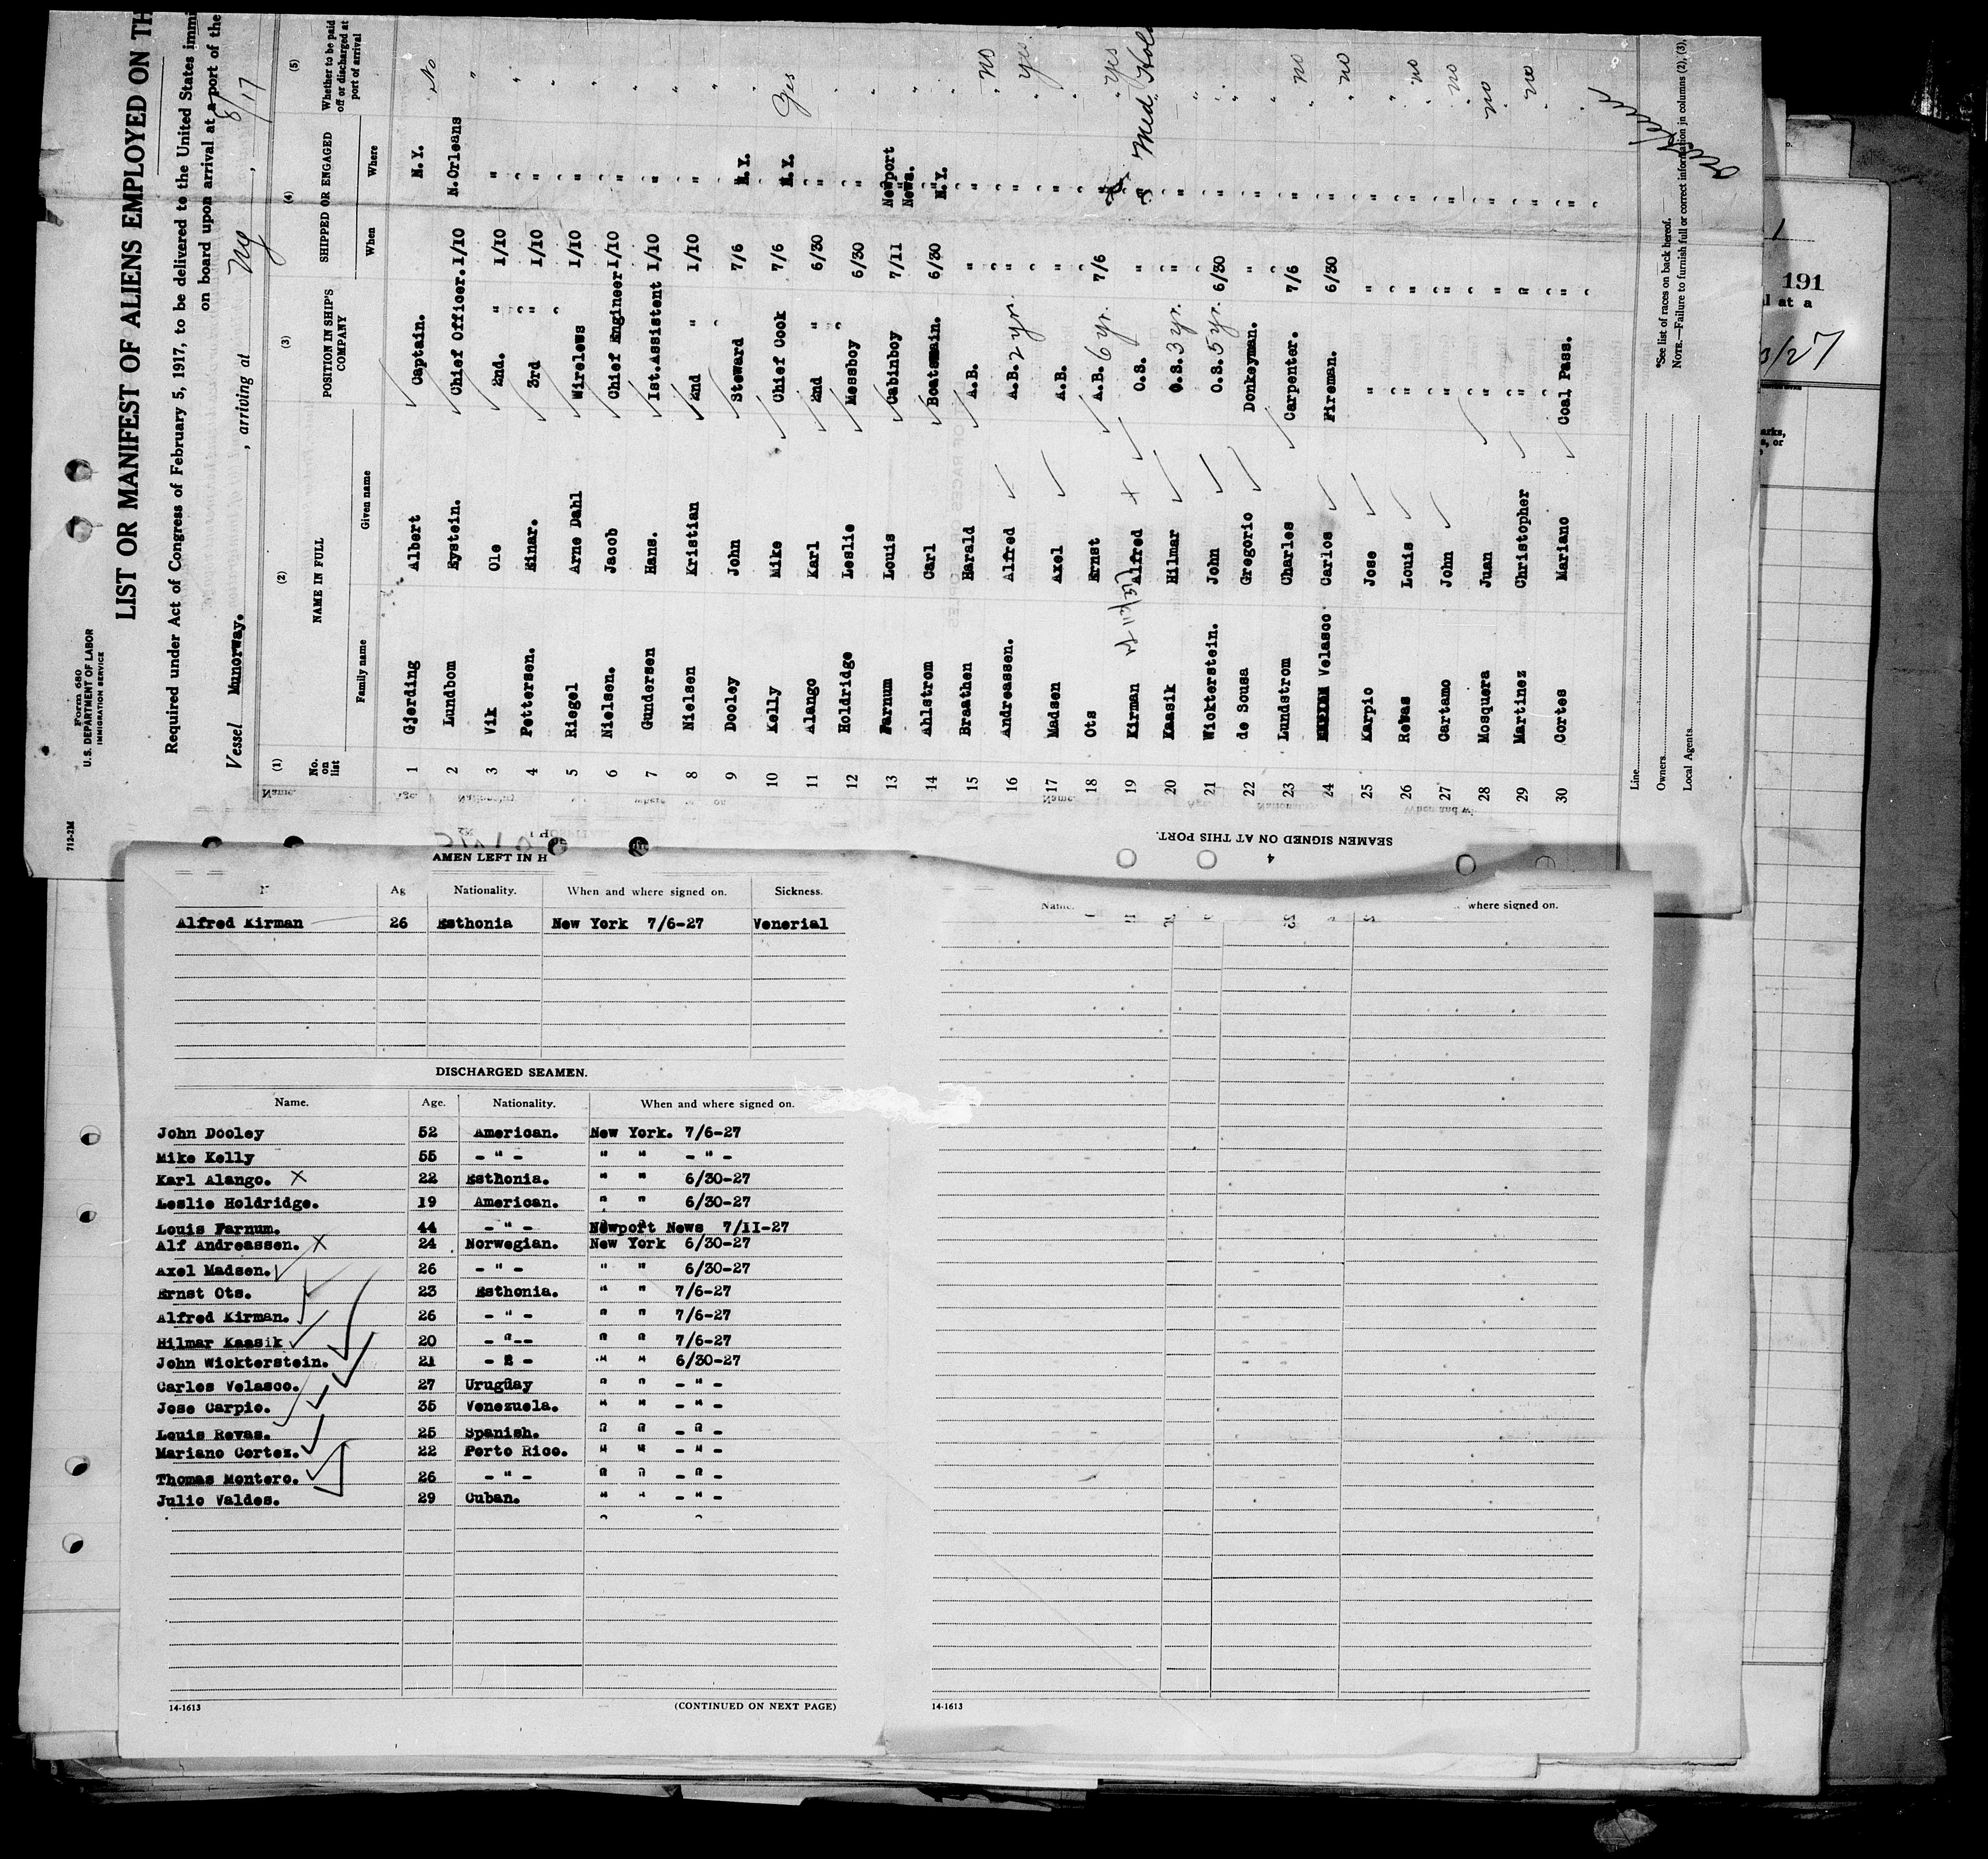 712-2M
Form 680
U.S. DEPARTMENT OF LABOR
IMMIGRATION SERVICE
LIST OR MANIFEST OF ALIENS EMPLOYED ON TH
Required under Act of Congress of February 5, 1917, to be delivered to the United States immi
on board upon arrival at a port of the
Vessel Munorway. , arriving at Ny , 8/17
(1) (2) (3) (4) (5)
No. on list NAME IN FULL POSITION IN SHIP'S COMPANY SHIPPED OR ENGAGED Whether to be paid off or discharged at port of arrival
Family name Given name When Where
1 Gjerding Albert Captain. N.Y. No
2 Lundbom Eystein. Chief Officer. 1/10 N.Orleans "
3 Vik Ole 2nd. " 1/10 " "
4 Pettersen. Einar. 3rd " 1/10 " "
5 Riegel Arne Dahl Wireless 1/10 " "
6 Nielsen. Jacob Chief Engineer 1/10 " "
7 Gundersen Hans. 1st.Assistent 1/10 " "
8 Nielsen Kristian 2nd " 1/10 " "
9 Dooley John Steward 7/6 N.Y. "
10 Kelly Mike Chief Cook 7/6 N.Y. yes
11 Alango Karl 2nd " 6/30 " "
12 Holdridge Leslie Messboy 6/30 " "
13 Farnum Louis Cabinboy 7/11 Newport News. "
14 Ahlstrom Carl Boatsmain. 6/30 N.Y. "
15 Braathen Harald A.B. " " no
16 Andreassen. Alfred A.B. 2 yr. " " yes
17 Madsen Axel A.B. " " "
18 Ots Ernst A.B. 6 yr. 7/6 " yes
19 Kirman Alfred O.S. " " Med. Hold
20 Kaasik Hilmar O.S. 3 yr. " " "
21 Wickterstein. John O.S. 5 yr. 6/30 " "
22 de Sousa Gregorio Donkeyman. " " "
23 Lundstrom Charles Carpenter. 7/6 " no
24 Velasco Carlos Fireman. 6/30 " no
25 Karpio Jose " " "
26 Revas Louis " " " no
27 Cartamo John " " " no
28 Mosquera Juan " " " no
29 Martinez Christopher " " " no
30 Cortes Mariano Coal Pass. " "
Line
Owners
Local Agents
*See list of races on back hereof.
NOTE.—Failure to furnish full or correct information in columns (2), (3),
SEAMEN SIGNED ON AT THIS PORT.
4
191
l at a
/27
AMEN LEFT IN H
Ag Nationality. When and where signed on. Sickness.
Alfred Kirman 26 Esthonia New York 7/6-27 Venerial
DISCHARGED SEAMEN.
Name. Age. Nationality. When and where signed on.
John Dooley 52 American. New York. 7/6-27
Mike Kelly 55 - " - " " - " -
Karl Alango. X 22 Esthonia. " " 6/30-27
Leslie Holdridge. 19 American. " " 6/30-27
Louis Farnum. 44 - " - Newport News 7/11-27
Alf Andreassen. X 24 Norwegian. New York 6/30-27
Axel Madsen. 26 - " - " " 6/30-27
Ernst Ots. 23 Esthonia. " " 7/6-27
Alfred Kirman. 26 - " - " " 7/6-27
Hilmar Kaasik 20 - " -- " " 7/6-27
John Wickterstein. 21 - " - " " 6/30-27
Carles Velasco. 27 Uruguay " " - " -
Jose Carpio. 35 Venezuela. " " - " -
Louis Revas. 25 Spanish. " " - " -
Mariano Cortez. 22 Porto Rico. " " - " -
Thomas Montero. 26 - " - " " - " -
Julio Valdes. 29 Cuban. " " - " -
14-1613 (CONTINUED ON NEXT PAGE)
Name. where signed on.
14-1613